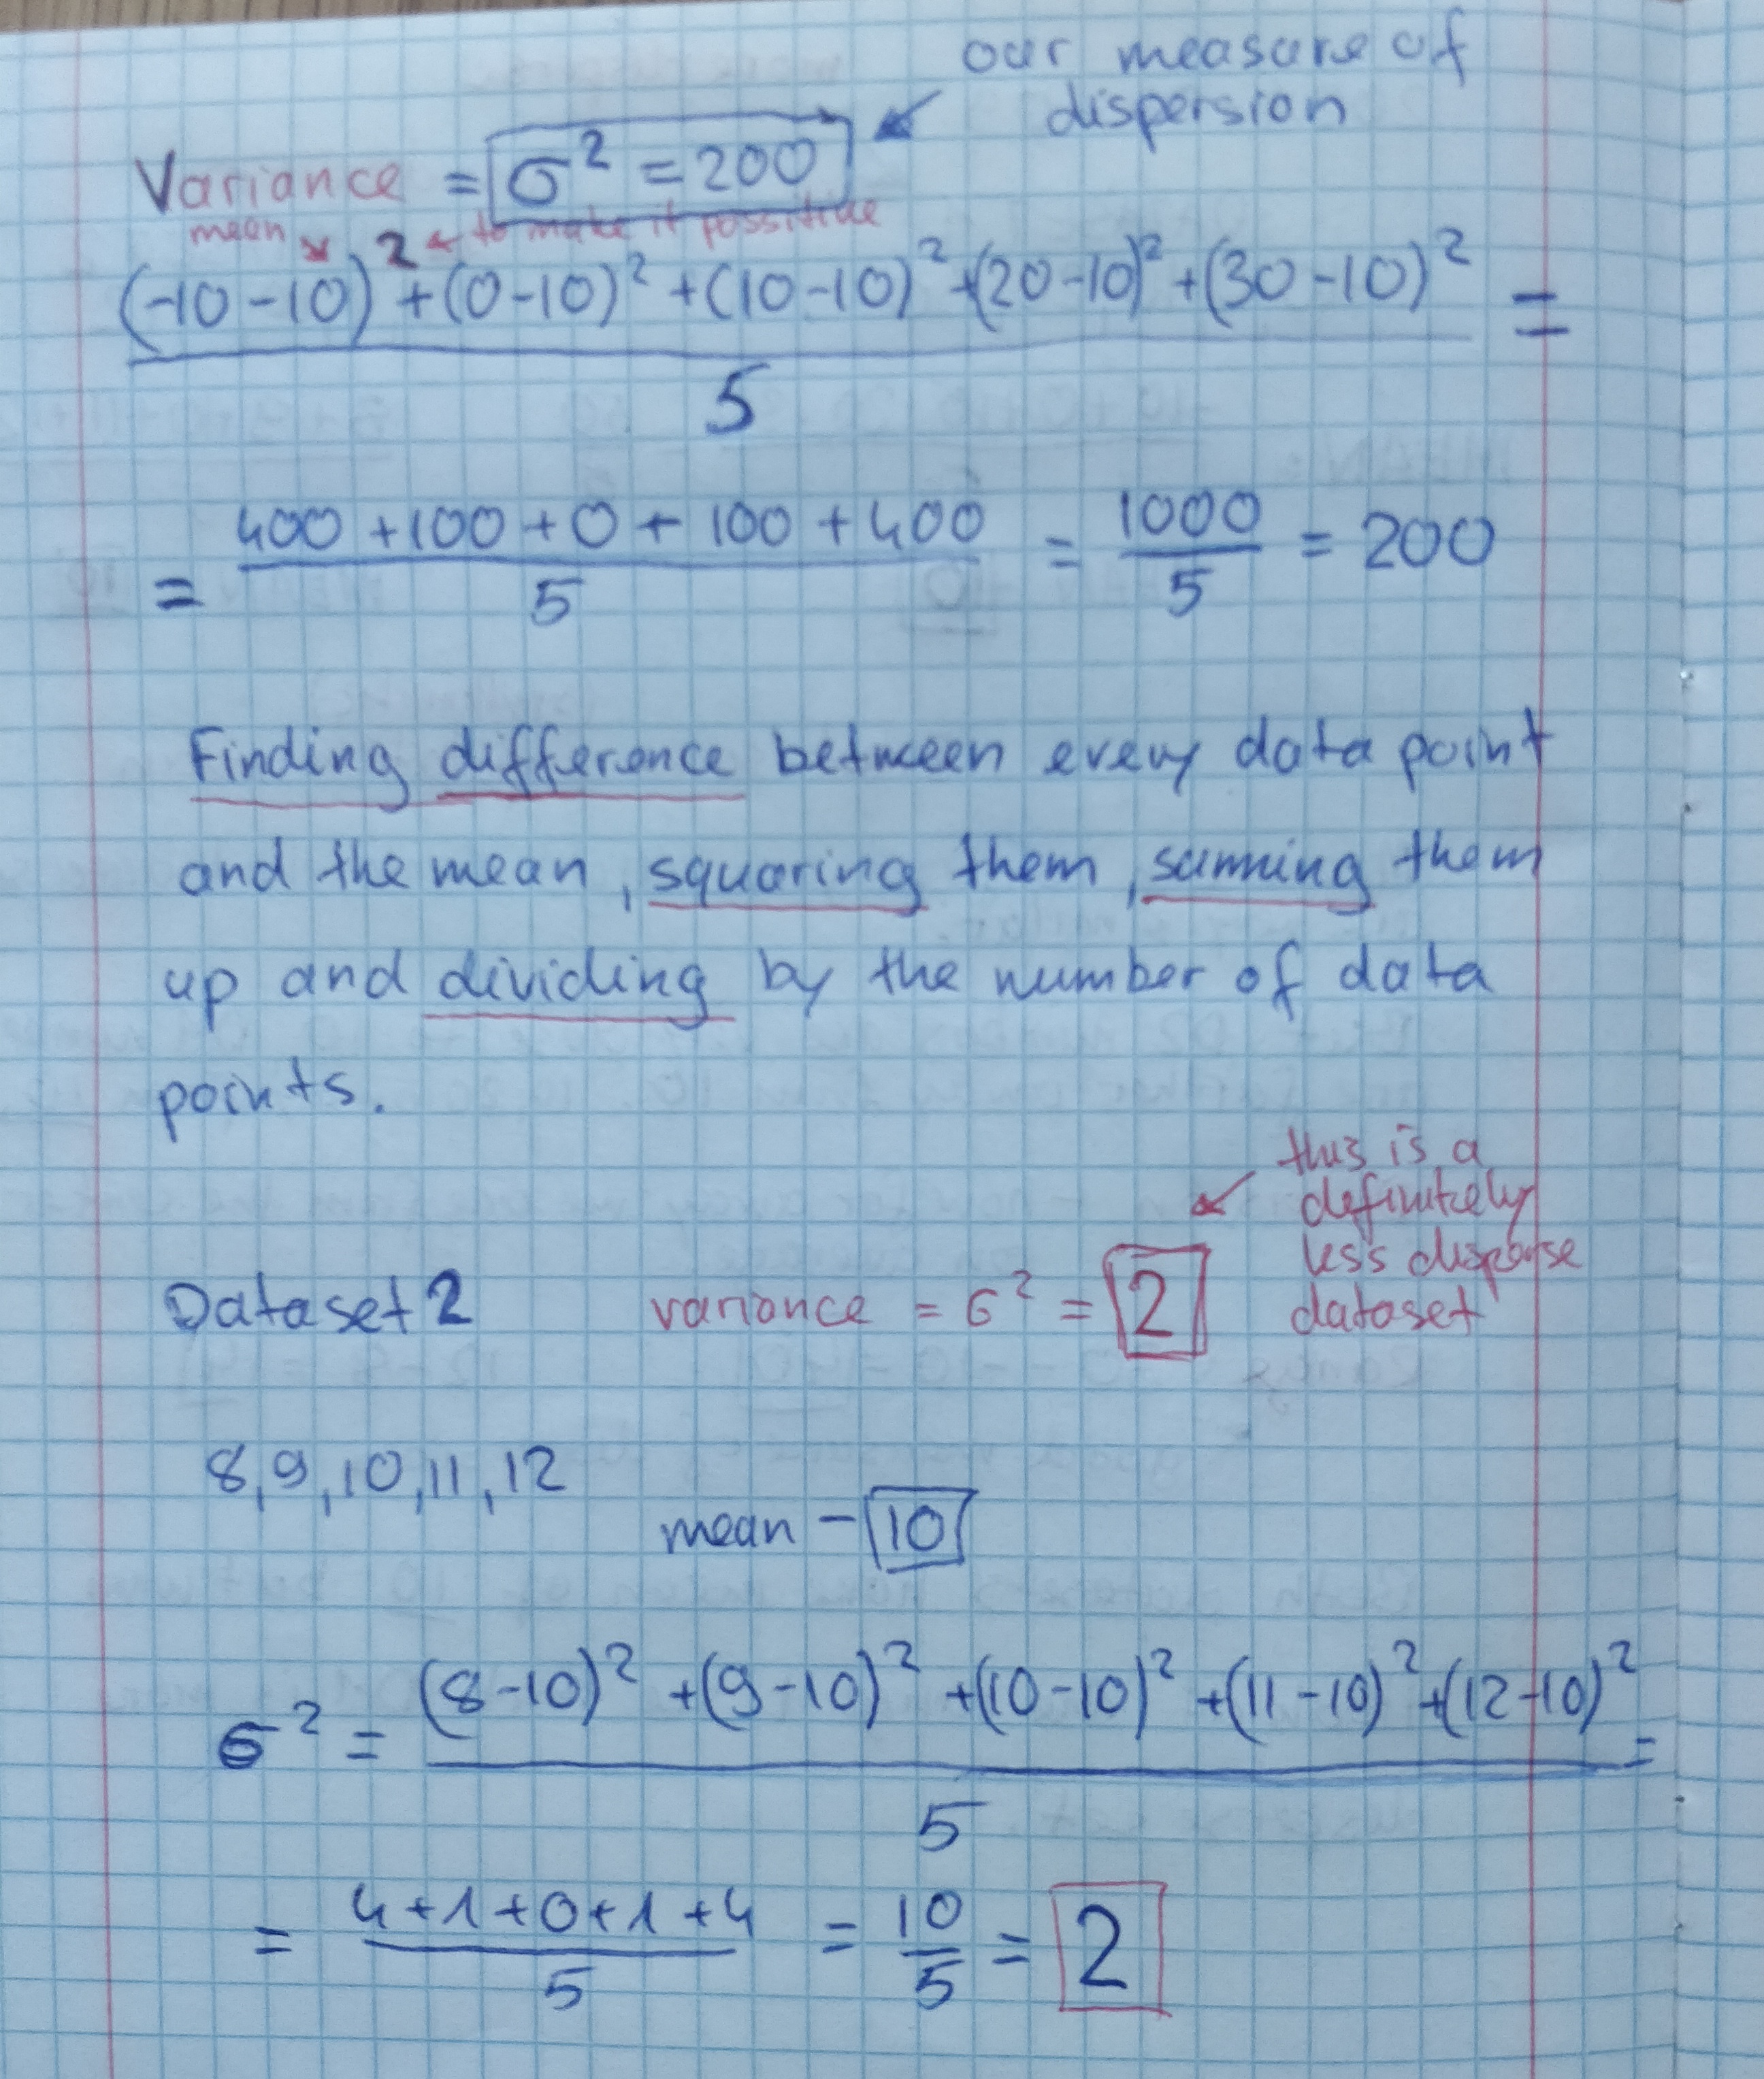 our measure of
dispersion
Variance = σ² = 200
mean 2 to make it possitive
(-10-10)² + (0-10)² + (10-10)² + (20-10)² + (30-10)² =
5
= 400 + 100 + 0 + 100 + 400 = 1000 = 200
5 5
Finding difference between every data point
and the mean, squaring them, summing them
up and dividing by the number of data
points.
this is a
definitely
less disparse
dataset
Dataset 2 variance = σ² = 2
8, 9, 10, 11, 12
mean - 10
σ² = (8-10)² + (9-10)² + (10-10)² + (11-10)² + (12-10)² =
5
= 4+1+0+1+4 = 10 = 2
5 5